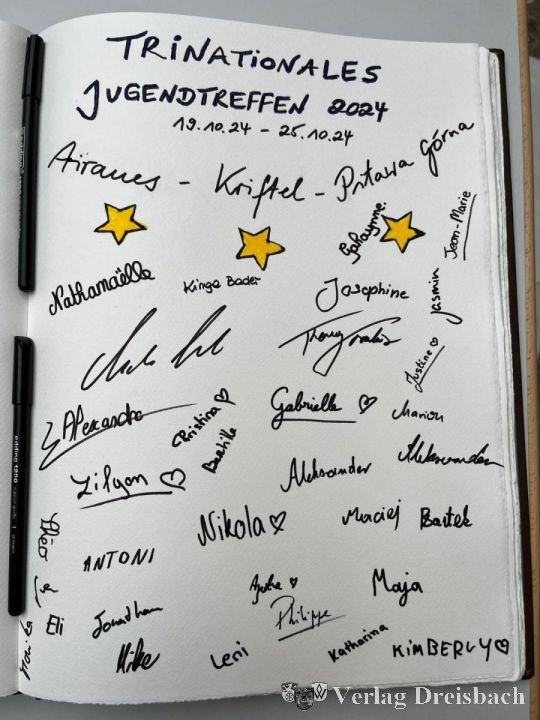 TRINATIONALES
JUGENDTREFFEN 2024
19.10.24 - 25.10.24
Airaines - Kriftel - Piława Górna
Jean-Marie
Nathanaëlle
Kinga Bader
Josephine
Jasmin
Justine
Alexandre
Christina
Bastille
Gabrielle
Marion
Lilyan
Aleksander
Aleksander
Théo
Nikola
Maciej
Bartek
ANTONI
Maja
Eli
Jonathan
Philippe
Mike
Leni
Katharina
KIMBERLY
edding 1200
Verlag Dreisbach